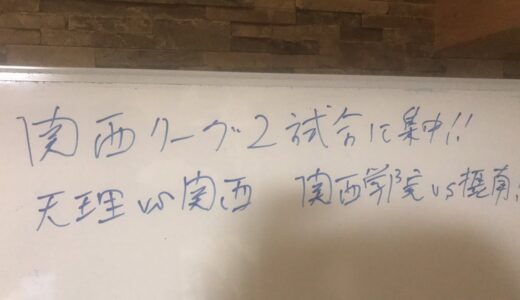 関西リーグ2試合に集中!!
天理vs関西 関西学院vs摂南、